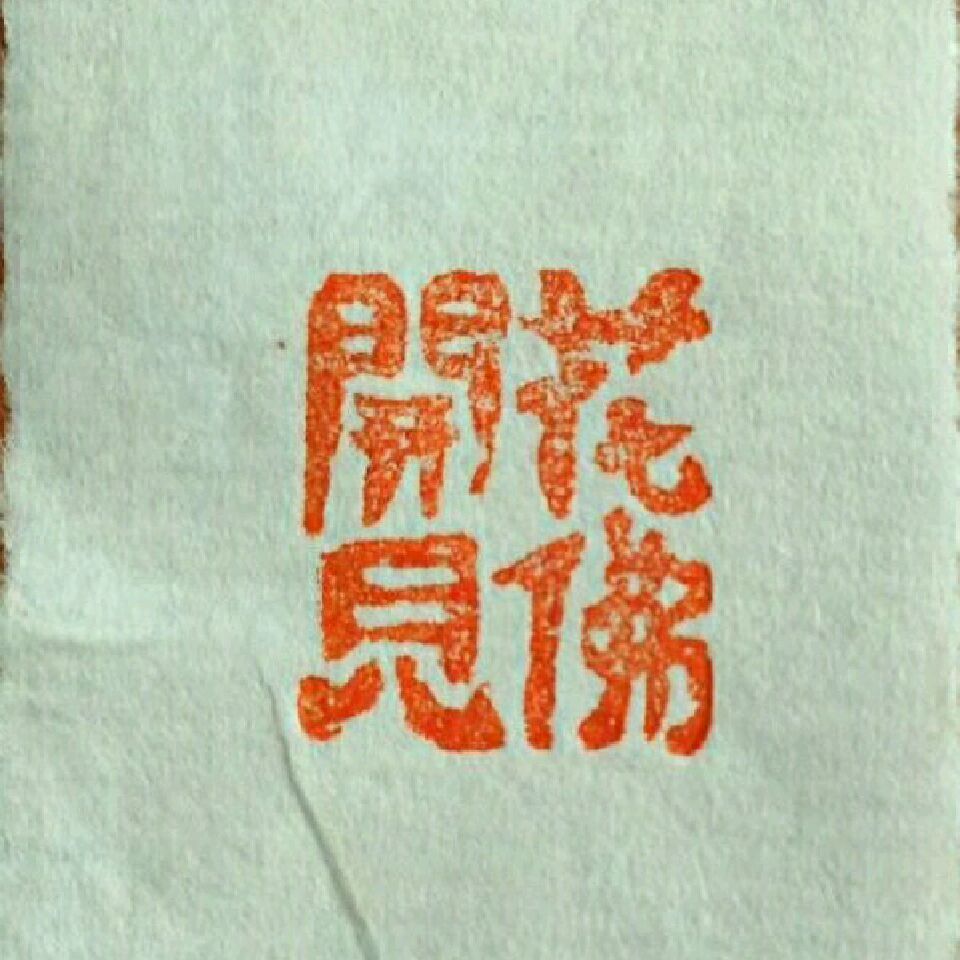 花開
佛見